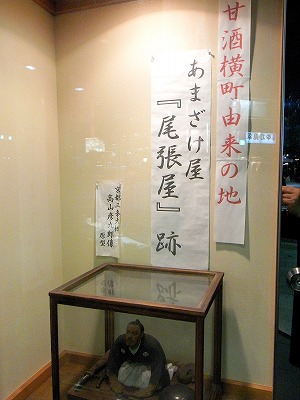 甘酒横町由来の地
あまざけ屋
『尾張屋』跡
京都三条大橋
高山彦九郎像
原型